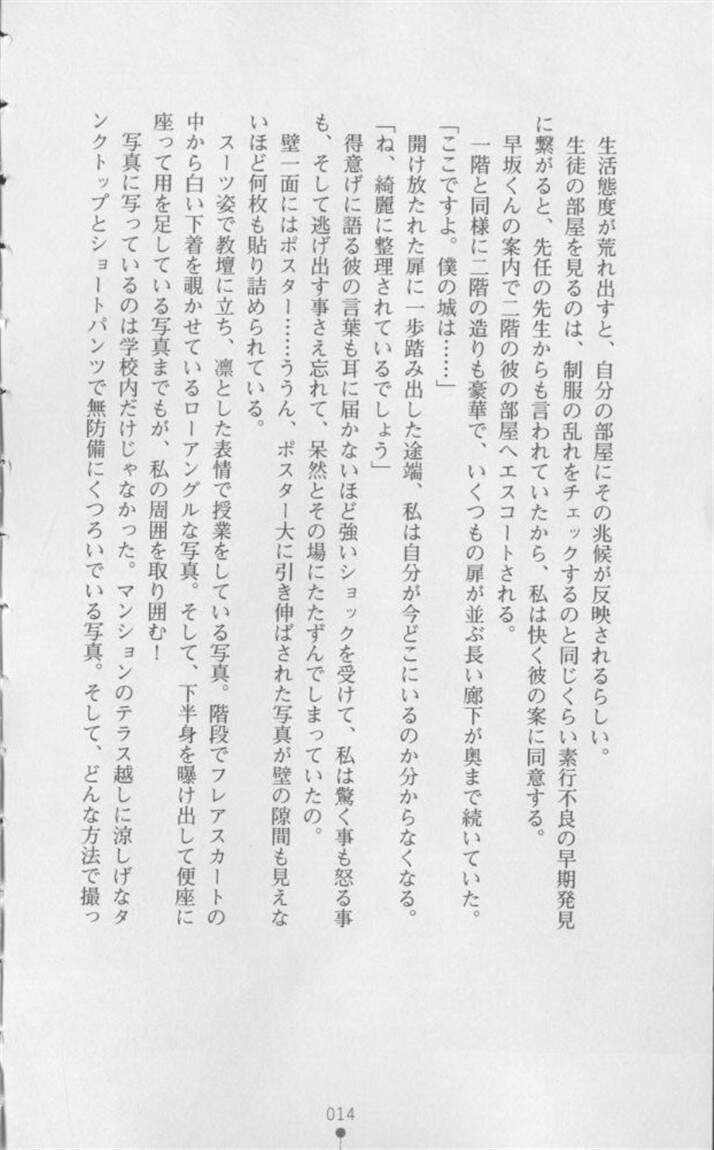 生活態度が荒れ出すと、自分の部屋にその兆候が反映されるらしい。
生徒の部屋を見るのは、制服の乱れをチェックするのと同じくらい素行不良の早期発見
に繋がると、先任の先生からも言われていたから、私は快く彼の案に同意する。
早坂くんの案内で二階の彼の部屋へエスコートされる。
一階と同様に二階の造りも豪華で、いくつもの扉が並ぶ長い廊下が奥まで続いていた。
「ここですよ。僕の城は……」
開け放たれた扉に一歩踏み出した途端、私は自分が今どこにいるのか分からなくなる。
「ね、綺麗に整理されているでしょう」
得意げに語る彼の言葉も耳に届かないほど強いショックを受けて、私は驚く事も怒る事
も、そして逃げ出す事さえ忘れて、呆然とその場にたたずんでしまっていたの。
壁一面にはポスター……ううん、ポスター大に引き伸ばされた写真が壁の隙間も見えな
いほど何枚も貼り詰められている。
スーツ姿で教壇に立ち、凛とした表情で授業をしている写真。階段でフレアスカートの
中から白い下着を覗かせているローアングルな写真。そして、下半身を曝け出して便座に
座って用を足している写真までもが、私の周囲を取り囲む！
写真に写っているのは学校内だけじゃなかった。マンションのテラス越しに涼しげなタ
ンクトップとショートパンツで無防備にくつろいでいる写真。そして、どんな方法で撮っ
014